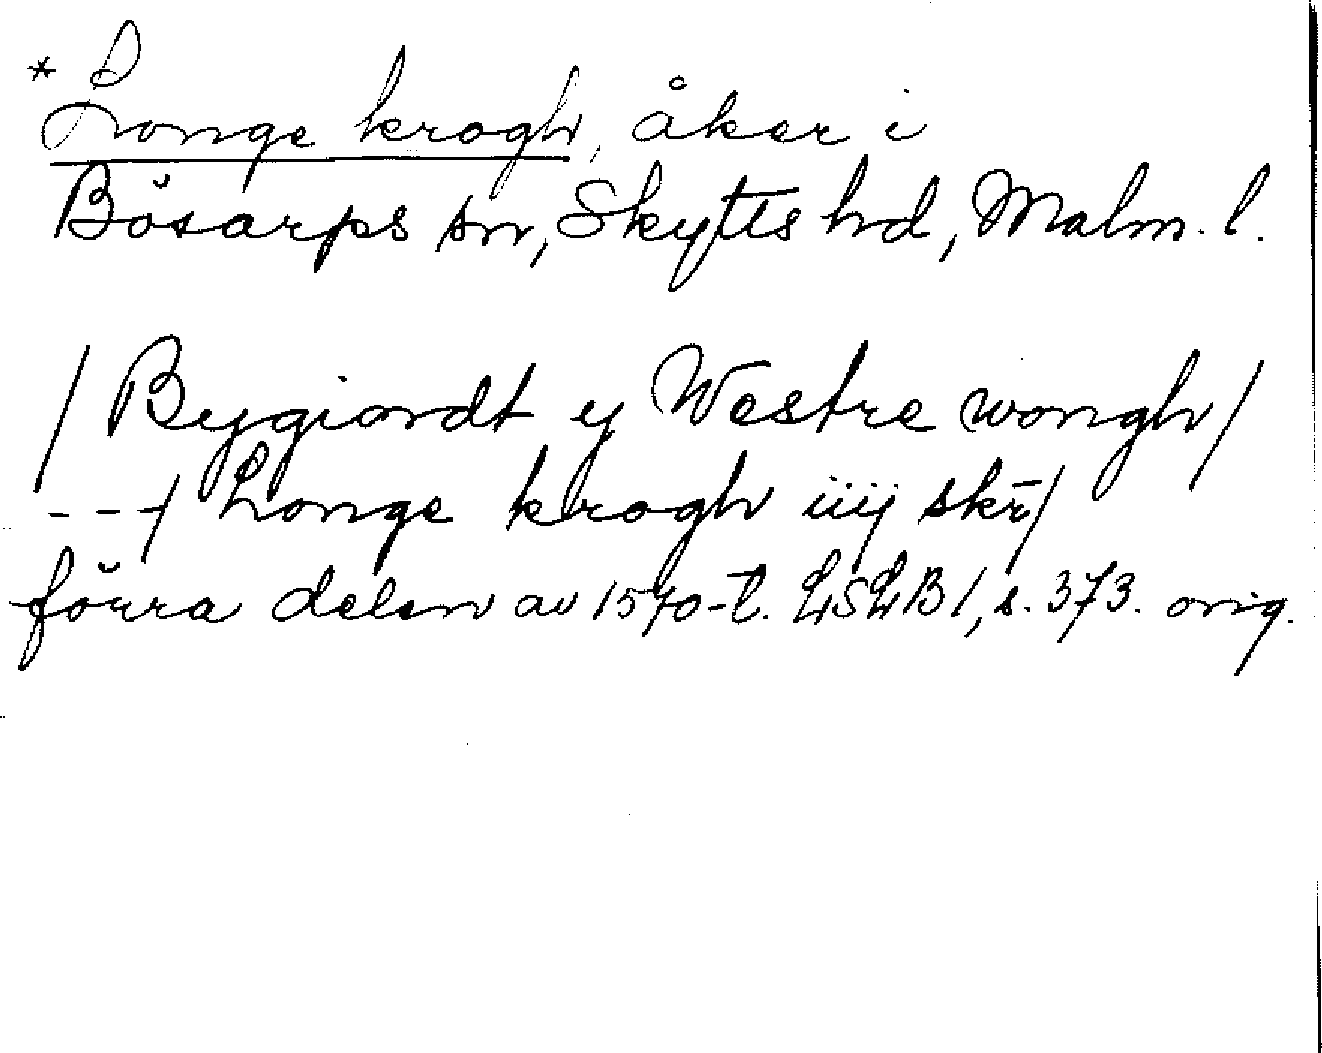 * Longe krogh, åker i
Bösarps sn, Skytts hd, Malm. l.
/ Bygiordt y Westre wongh /
- - / Longe krogh iiij skr̄ /
förra delen av 1570-t. LSLB 1, s. 373. orig.